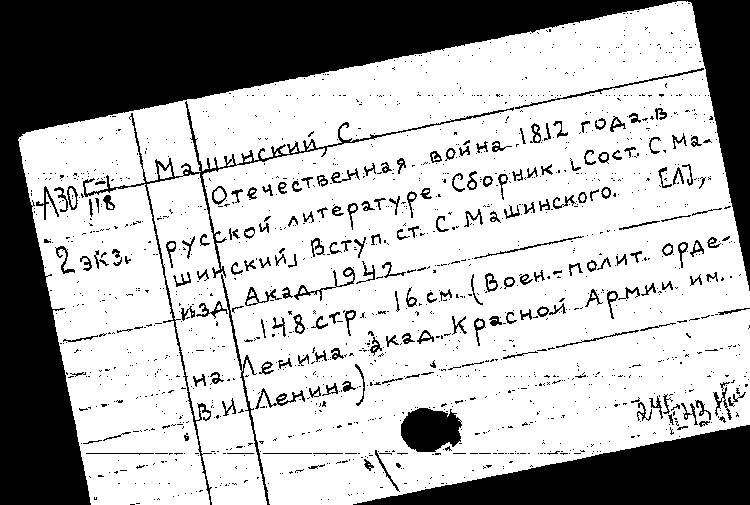 Машинский, С.
Л30 Г-1/118
Отечественная война 1812 года в
2 экз.
русской литературе. Сборник. [Сост. С. Ма-
шинский] Вступ. ст. С. Машинского. [Л],
изд. Акад., 1942
148 стр. 16 см. (Воен.-полит. орде-
на Ленина акад. Красной Армии им.
В.И. Ленина)